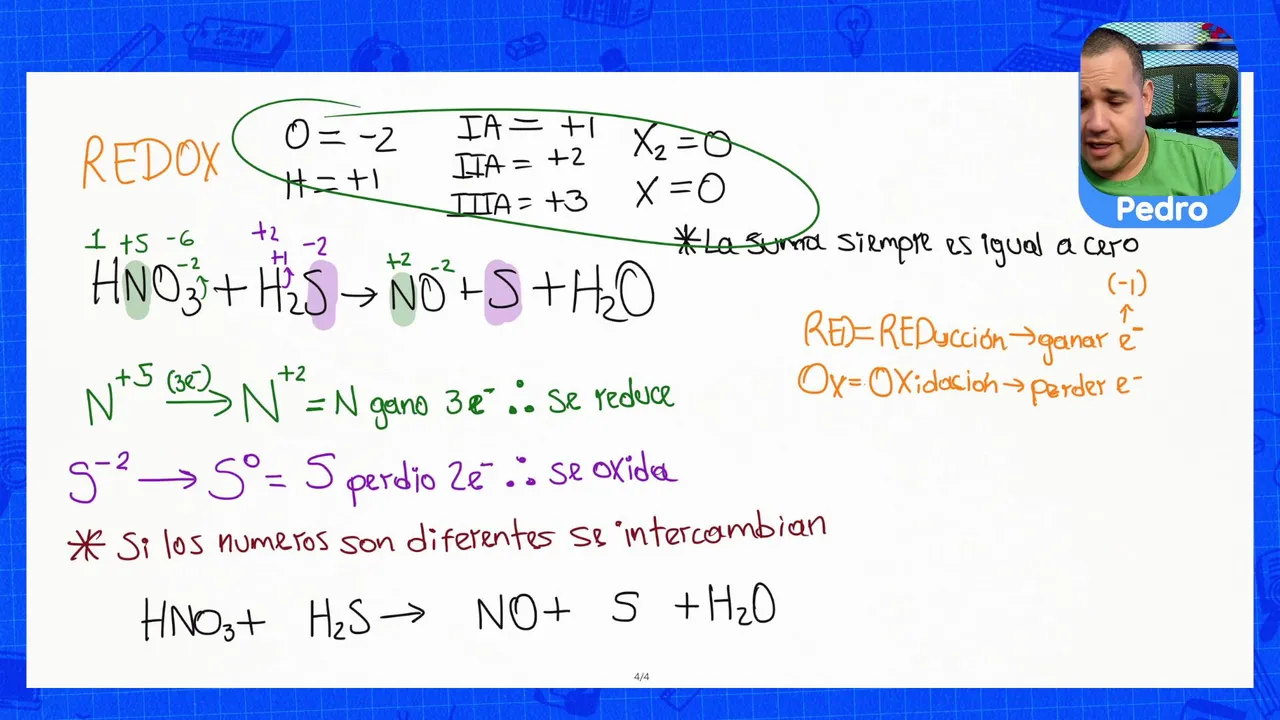 REDOX
O = -2
H = +1
IA = +1
IIA = +2
IIIA = +3
X₂ = O
X = O
Pedro
*La suma siempre es igual a cero
1 +5 -6 +2
-2 +1 -2 +2 -2
HNO₃ + H₂S → NO + S + H₂O
(-1)
↑
RED = REDucción → ganar e⁻
Ox = OXidación → perder e⁻
N⁺⁵ (3e⁻) → N⁺² = N gano 3e⁻ ∴ se reduce
S⁻² → S⁰ = S perdio 2e⁻ ∴ se oxida
* Si los numeros son diferentes se intercambian
HNO₃ + H₂S → NO + S + H₂O
4/4